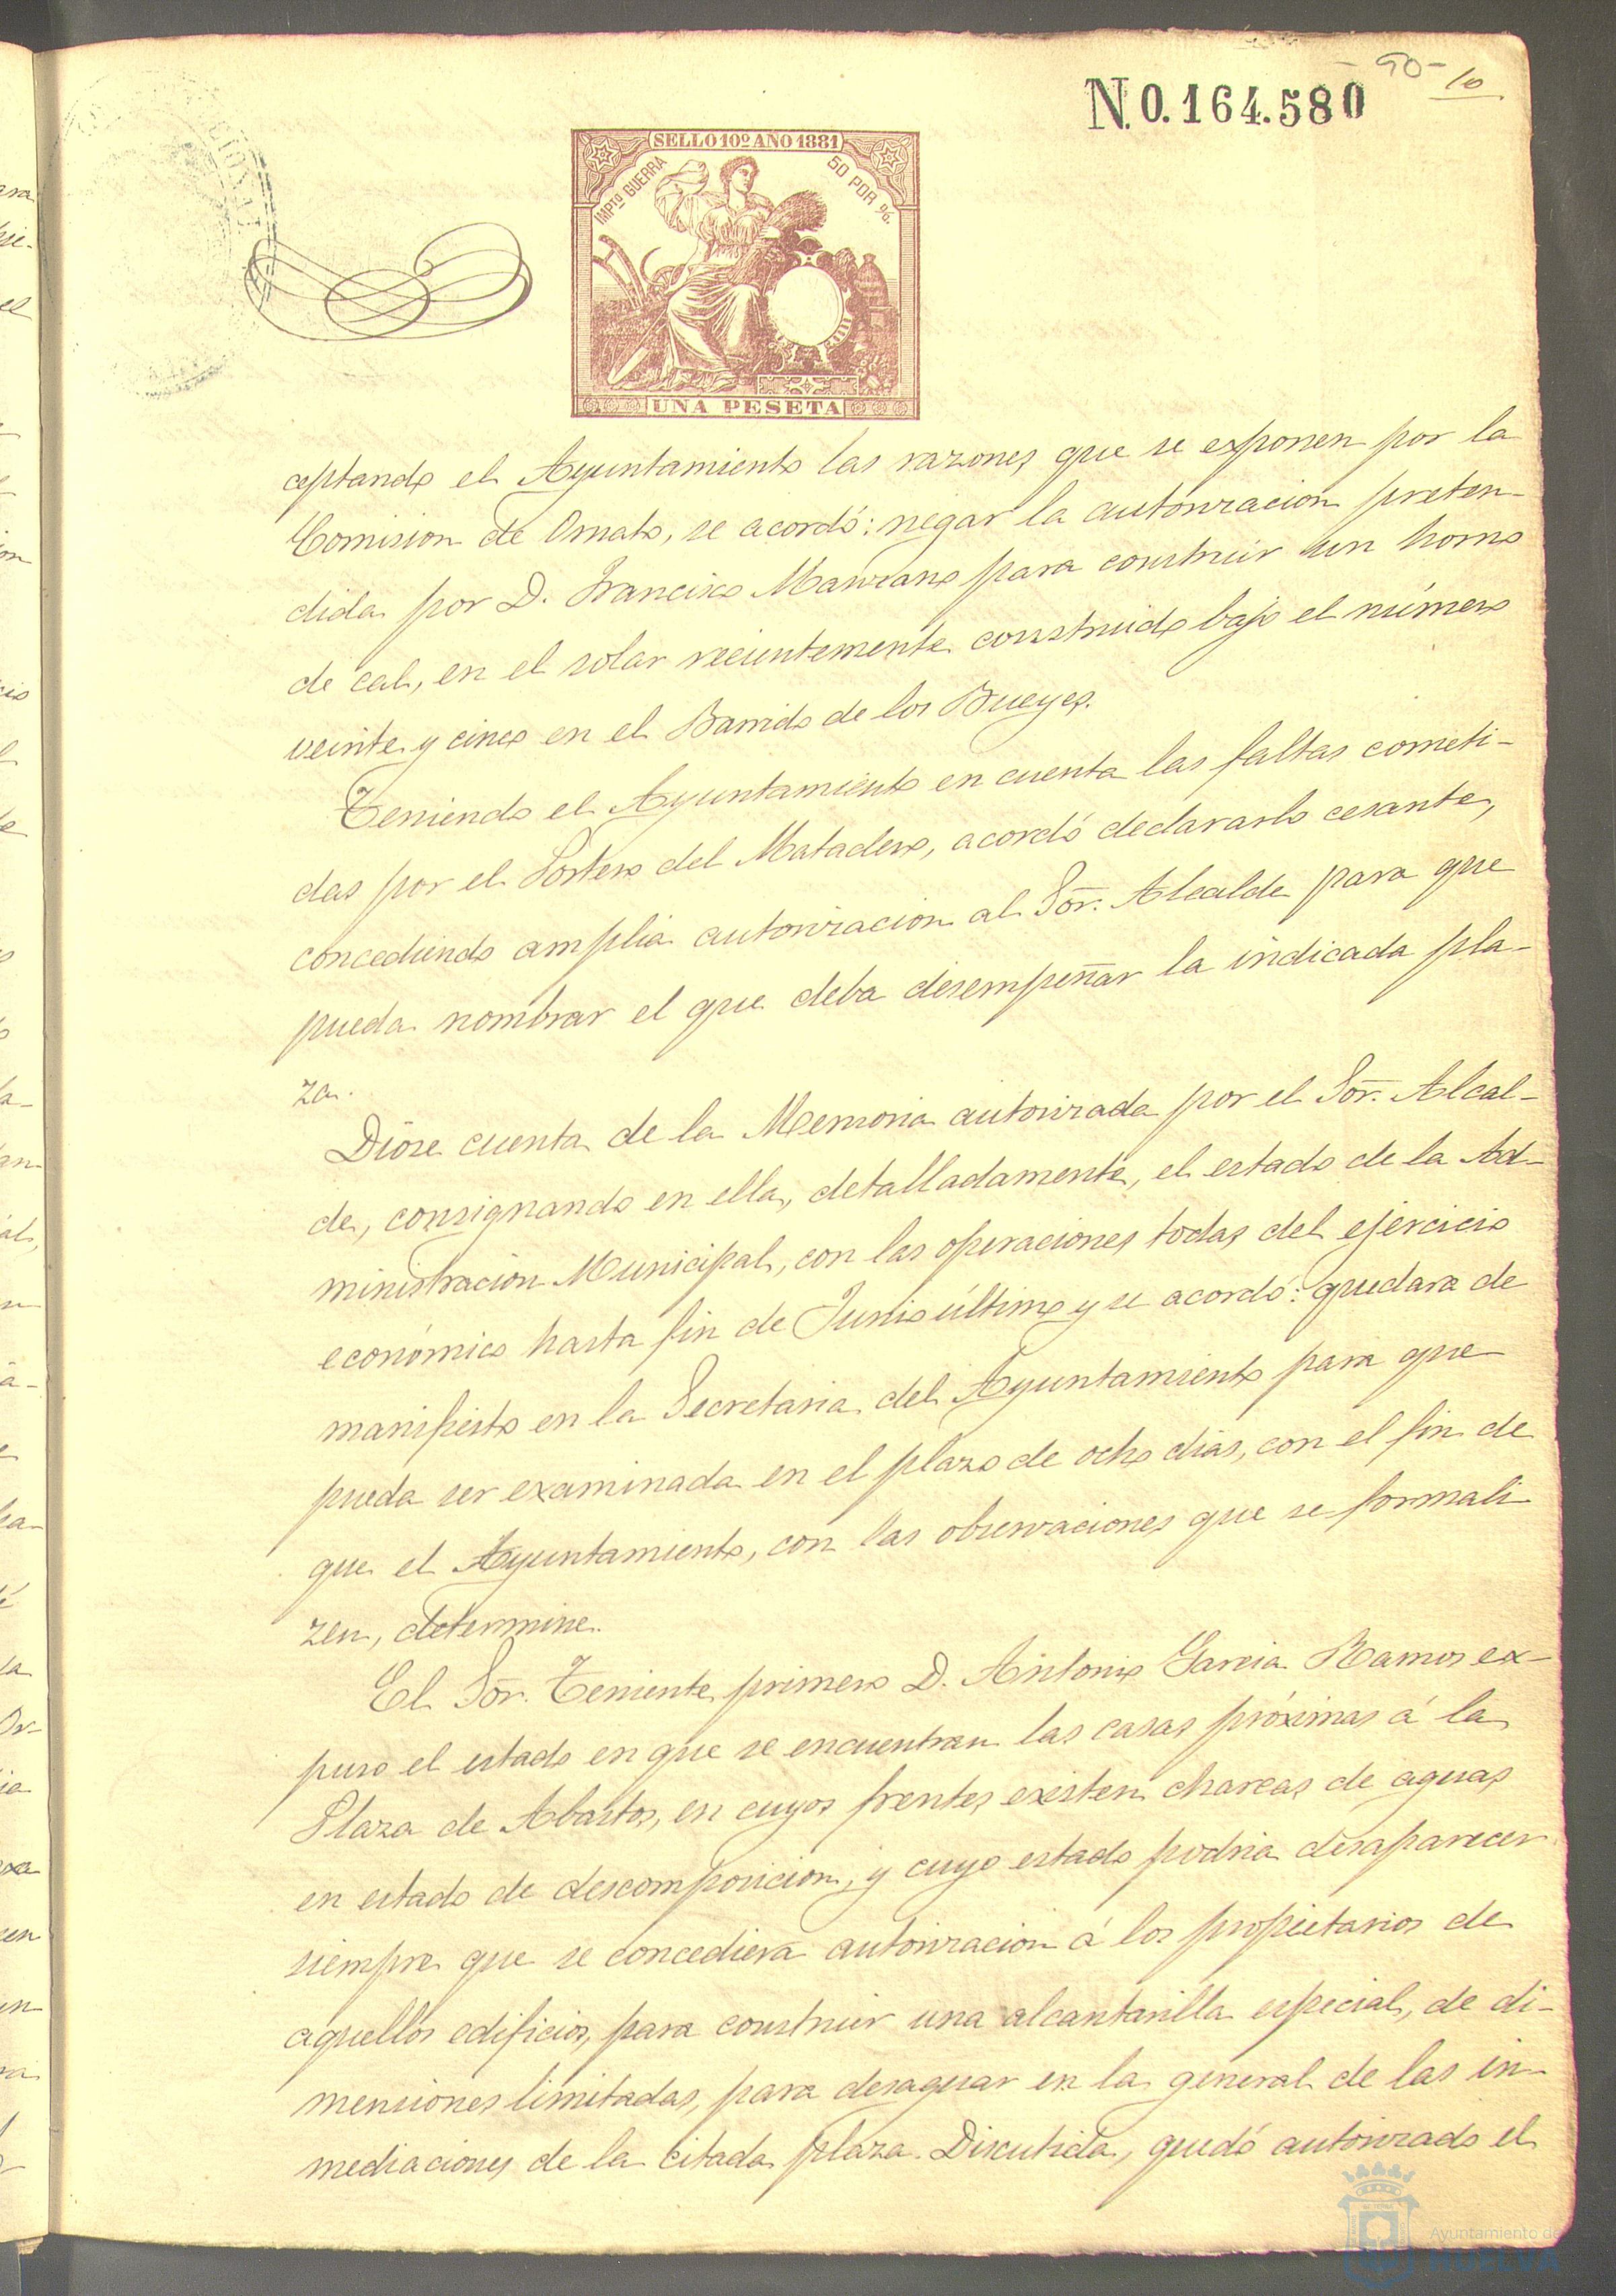 - 90 -
10
N.0.164.580
SELLO 10º AÑO 1881
IMPTO GUERRA
50 POR %.
UNA PESETA
ceptando el Ayuntamiento las razones que se exponen por la
Comision de Ornato, se acordó: negar la autorizacion preten-
dida por D. Francisco Manzano para construir un horno
de cal, en el solar recientemente construido bajo el número
veinte y cinco en el Barrido de los Bueyes.
Teniendo el Ayuntamiento en cuenta las faltas cometi-
das por el Portero del Matadero, acordó declararlo cesante,
concediendo amplia autorizacion al Sõr. Alcalde para que
pueda nombrar el que deba desempeñar la indicada pla-
za.
Dióse cuenta de la Memoria autorizada por el Sõr. Alcal-
de, consignando en ella, detalladamente, el estado de la Ad-
ministracion Municipal, con las operaciones todas del ejercicio
económico hasta fin de Junio último y se acordó: quedara de
manifiesto en la Secretaria del Ayuntamiento para que
pueda ser examinada en el plazo de ocho dias, con el fin de
que el Ayuntamiento, con las observaciones que se formali
zen, determine.
El Sõr. Teniente primero D. Antonio Garcia Ramos ex-
puso el estado en que se encuentran las casas próximas á la
Plaza de Abastos, en cuyos frentes existen charcas de aguas
en estado de descomposicion, y cuyo estado podria desaparecer
siempre que se concediera autorizacion á los propietarios de
aquellos edificios, para construir una alcantarilla especial, de di-
mensiones limitadas, para desaguar en la general de las in-
mediaciones de la citada plaza. Discutida, quedó autorizado el
Ayuntamiento de
HUELVA